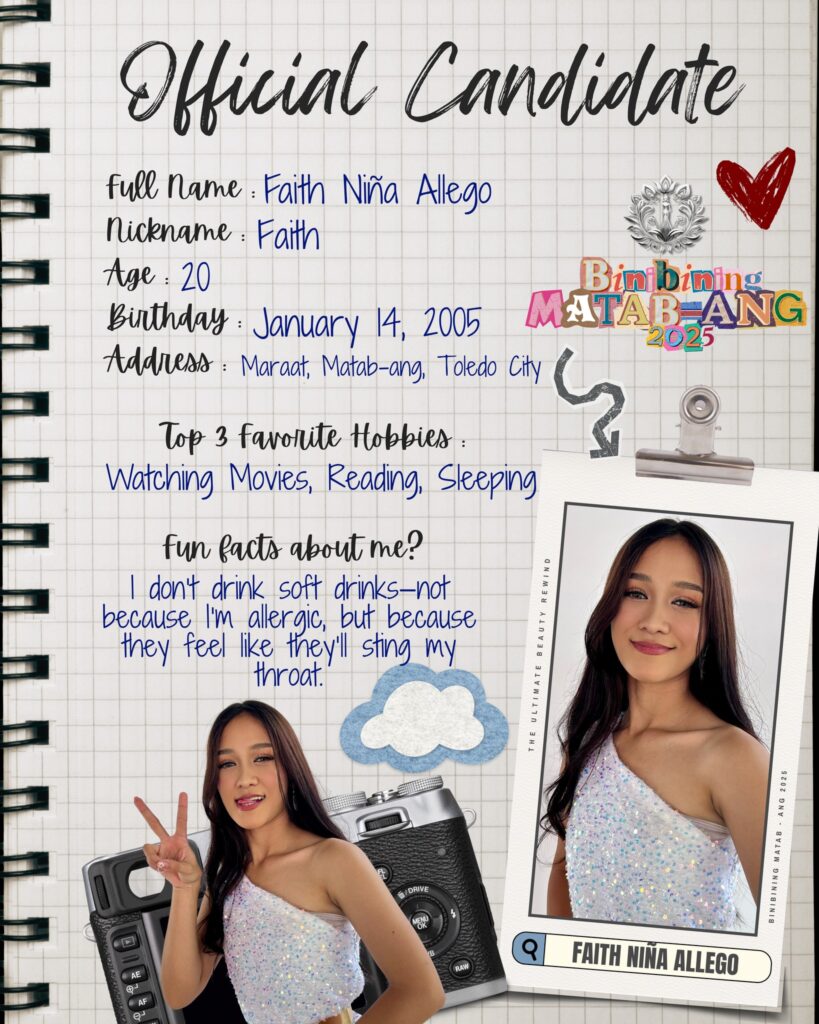 Official Candidate
Full Name : Faith Niña Allego
Nickname : Faith
Age : 20
Birthday : January 14, 2005
Address : Maraat, Matab-ang, Toledo City
Binibining
MATAB-ANG
2025
Top 3 Favorite Hobbies :
Watching Movies, Reading, Sleeping
Fun facts about me?
I don't drink soft drinks—not
because I'm allergic, but because
they feel like they'll sting my
throat.
THE ULTIMATE BEAUTY REWIND
BINIBINING MATAB - ANG 2025
FAITH NIÑA ALLEGO
DRIVE
MENU
OK
RAW
AE
AF